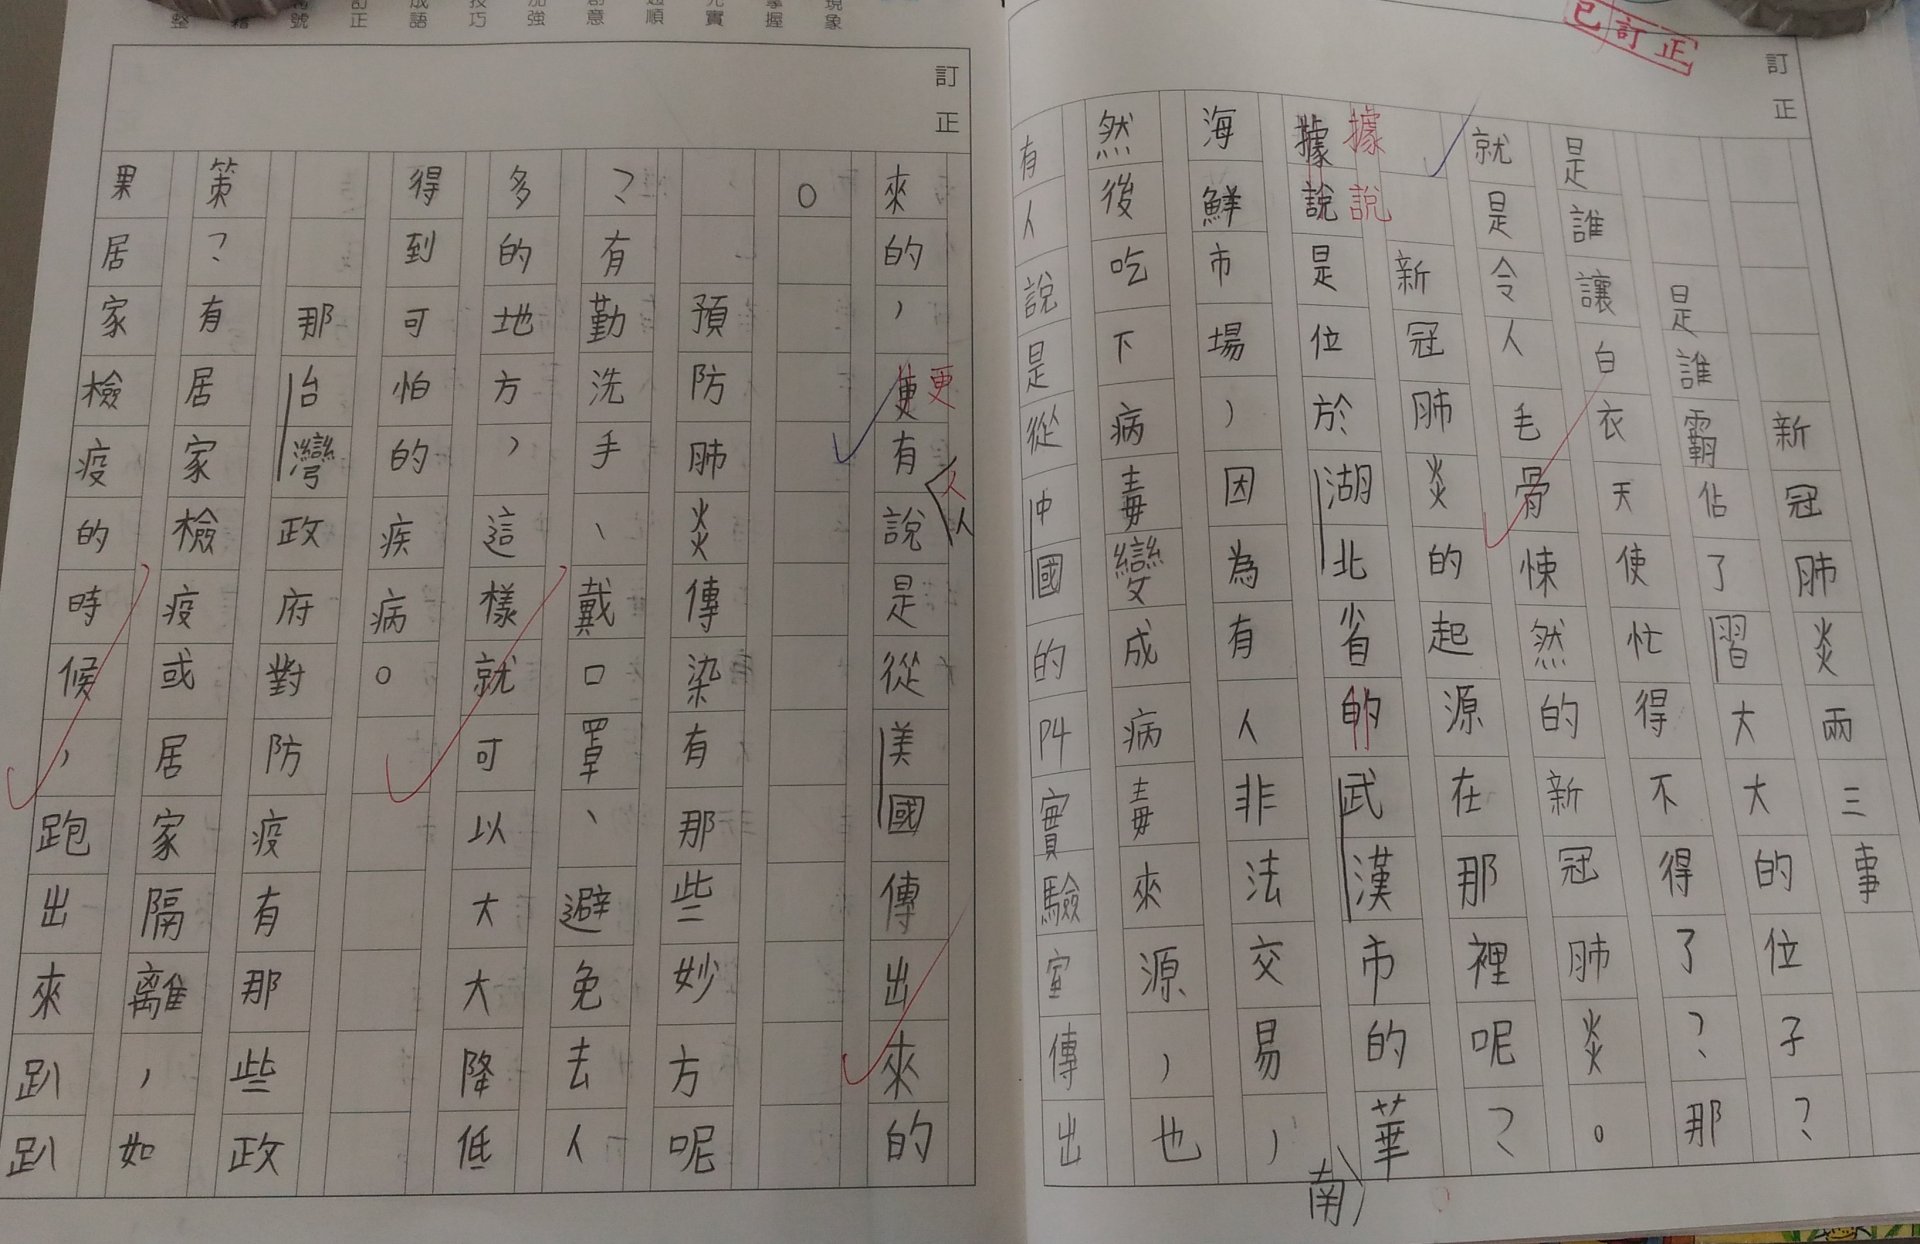 已訂正
訂正
新冠肺炎兩三事
是誰霸佔了習大大的位子?
是誰讓白衣天使忙得不得了?那
就是令人毛骨悚然的新冠肺炎。
新冠肺炎的起源在那裡呢?
據說
據說是位於湖北省的武漢市的華
南
海鮮市場,因為有人非法交易,
然後吃下病毒變成病毒來源,也
有人說是從中國的P4實驗室傳出
訂正
來的,更有說是從美國傳出來的
更
人
人
。
預防肺炎傳染有那些妙方呢
?有勤洗手、戴口罩、避免去人
多的地方,這樣就可以大大降低
得到可怕的疾病。
那台灣政府對防疫有那些政
策?有居家檢疫或居家隔離,如
果居家檢疫的時候,跑出來趴趴
現象
掌握
充實
通順
創意
加強
技巧
成語
訂正
符號
整